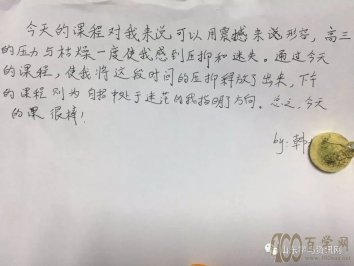 今天的课程对我来说可以用震撼来说形容,高三
的压力与枯燥一度使我感到压抑和迷失。通过今天
的课程,使我将这段时间的压抑释放了出来,下午
的课程则为自招中处于迷茫的我指明了方向。总之,今天
的课很棒!
by.韩
100百学网